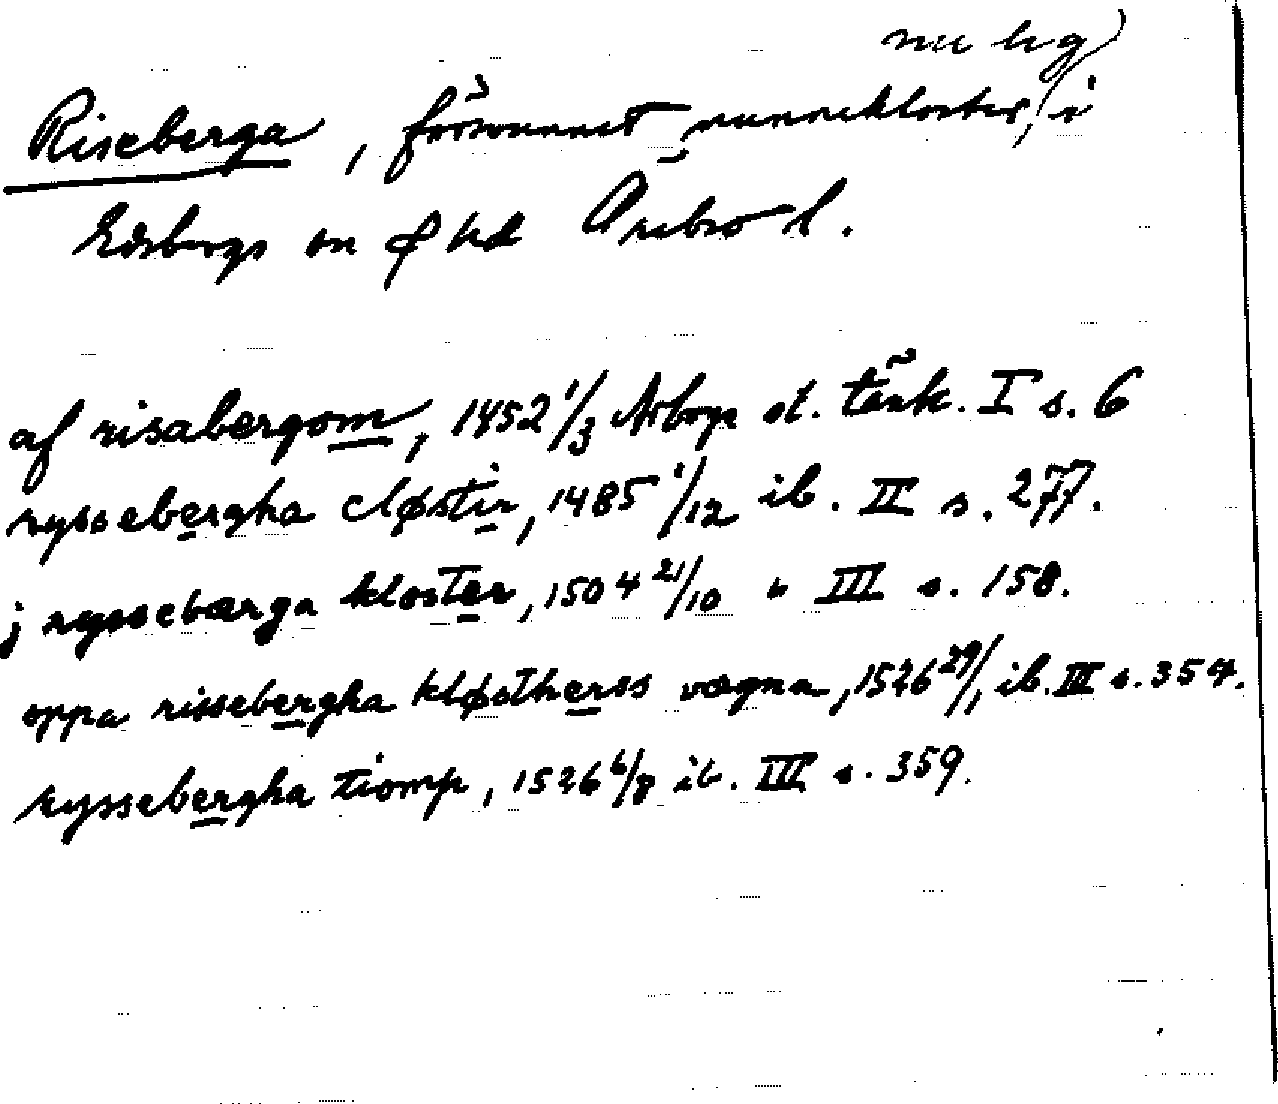 nu hg)
Riseberga, försvunnet nunnekloster, i
Edsbergs sn o hd Örebro l.
af risabergom, 1452 1/3 Arboga st. tänk. I s. 6
ryssebergha cløstir, 1485 1/12 ib. II s. 277.
j ryssebærga kloster, 1504 21/10 " III s. 158.
oppa rissebergha kløstherss vægna, 1526 29/1 ib. III s. 354.
Ryssebergha tiomp, 1526 6/8 ib. III s. 359.